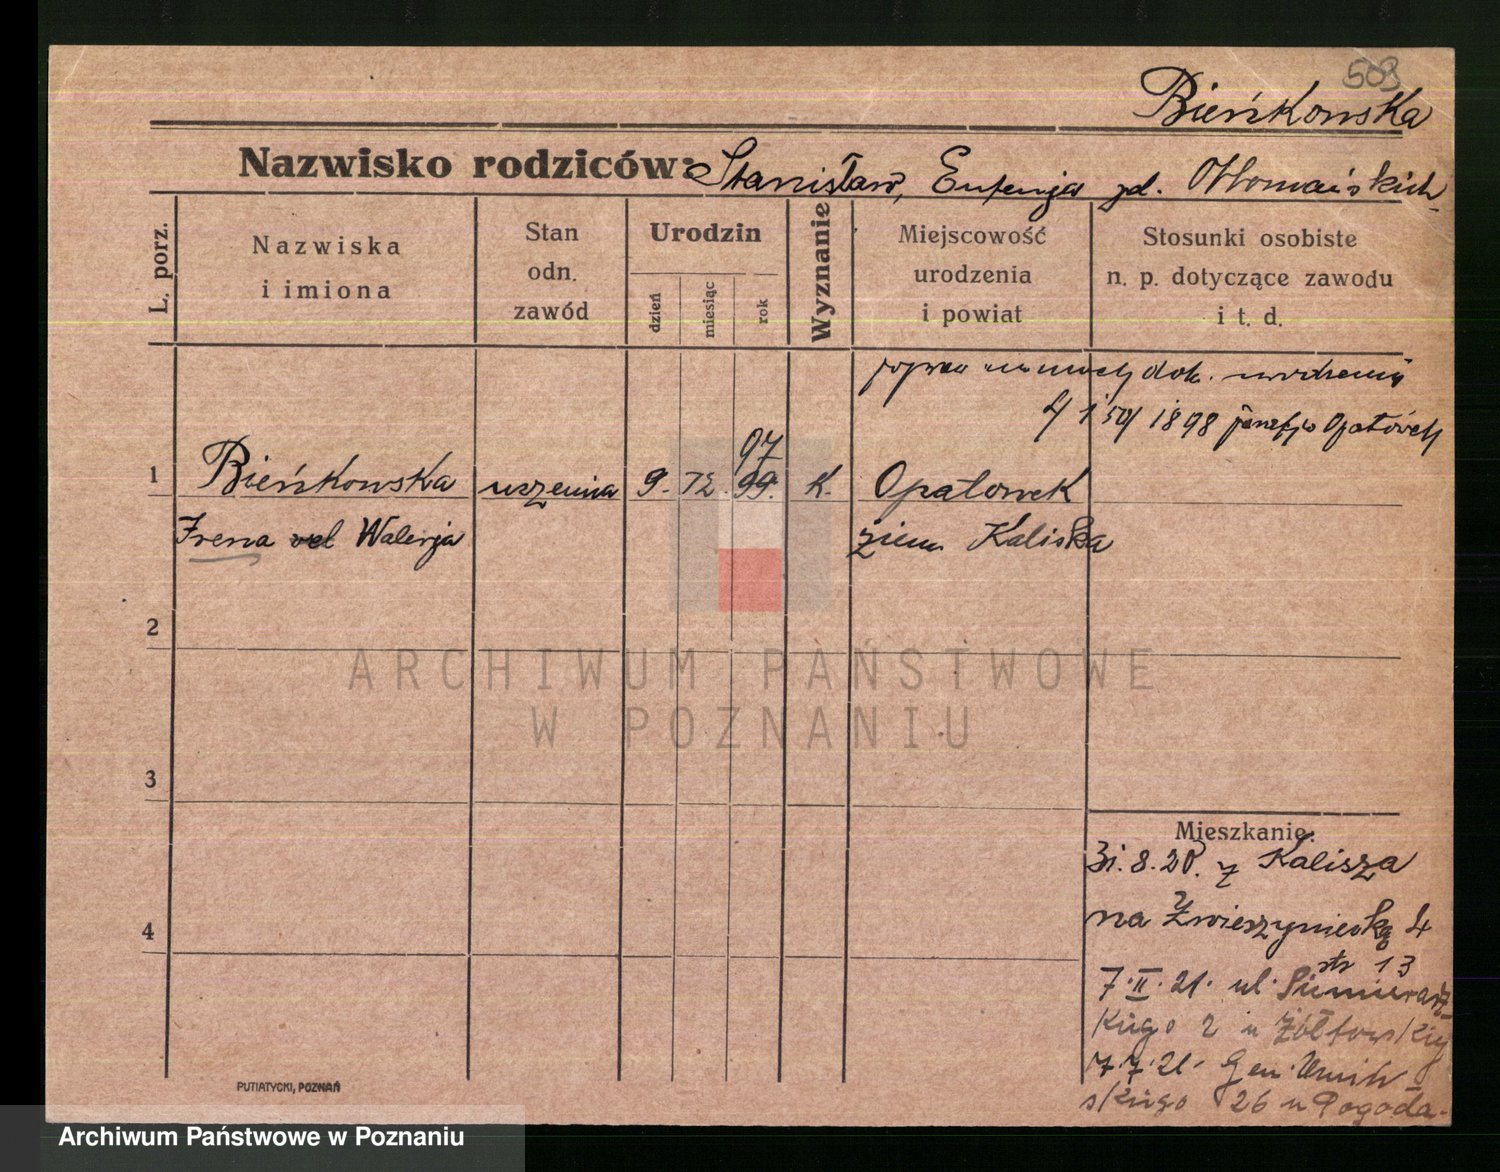 509
Bieńkowska
Nazwisko rodziców: Stanisław, Eufemja zd.
L. porz.
Nazwiska
i imiona
Stan
odn.
zawód
Urodzin
dzień
miesiąc
rok
Wyznanie
Miejscowość
urodzenia
i powiat
Stosunki osobiste
n. p. dotyczące zawodu
i t. d.
dok. urodzenia
1898 Opatówek
97
1 Bieńkowska uczenica 9. 12. 99. K. Opatowek
Irena vel Walerja ziem Kaliska
2
3
4
Mieszkanie.
31. 8. 20. z Kalisza
na Zwierzyniecką 4
13
7. II. 21. ul.
kiego 2 u Żółtowskiej
7. 7. 21. Gen. Umiń-
skiego 26 u Pogoda.
PUTIATYCKI, POZNAŃ
ARCHIWUM PAŃSTWOWE
W POZNANIU
Archiwum Państwowe w Poznaniu